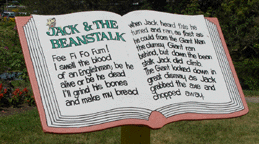 JACK & THE
BEANSTALK
Fee Fi Fo Fum!
I smell the blood
of an Englishman, be he
alive or be he dead
I'll grind his bones
and make my bread
When Jack heard this he
turned and ran, as fast as
he could from the Giant Man
the clumsy Giant ran
behind, but down the bean
stalk Jack did climb
The Giant looked down in
great dismay as Jack
grabbed the axe and
chopped away